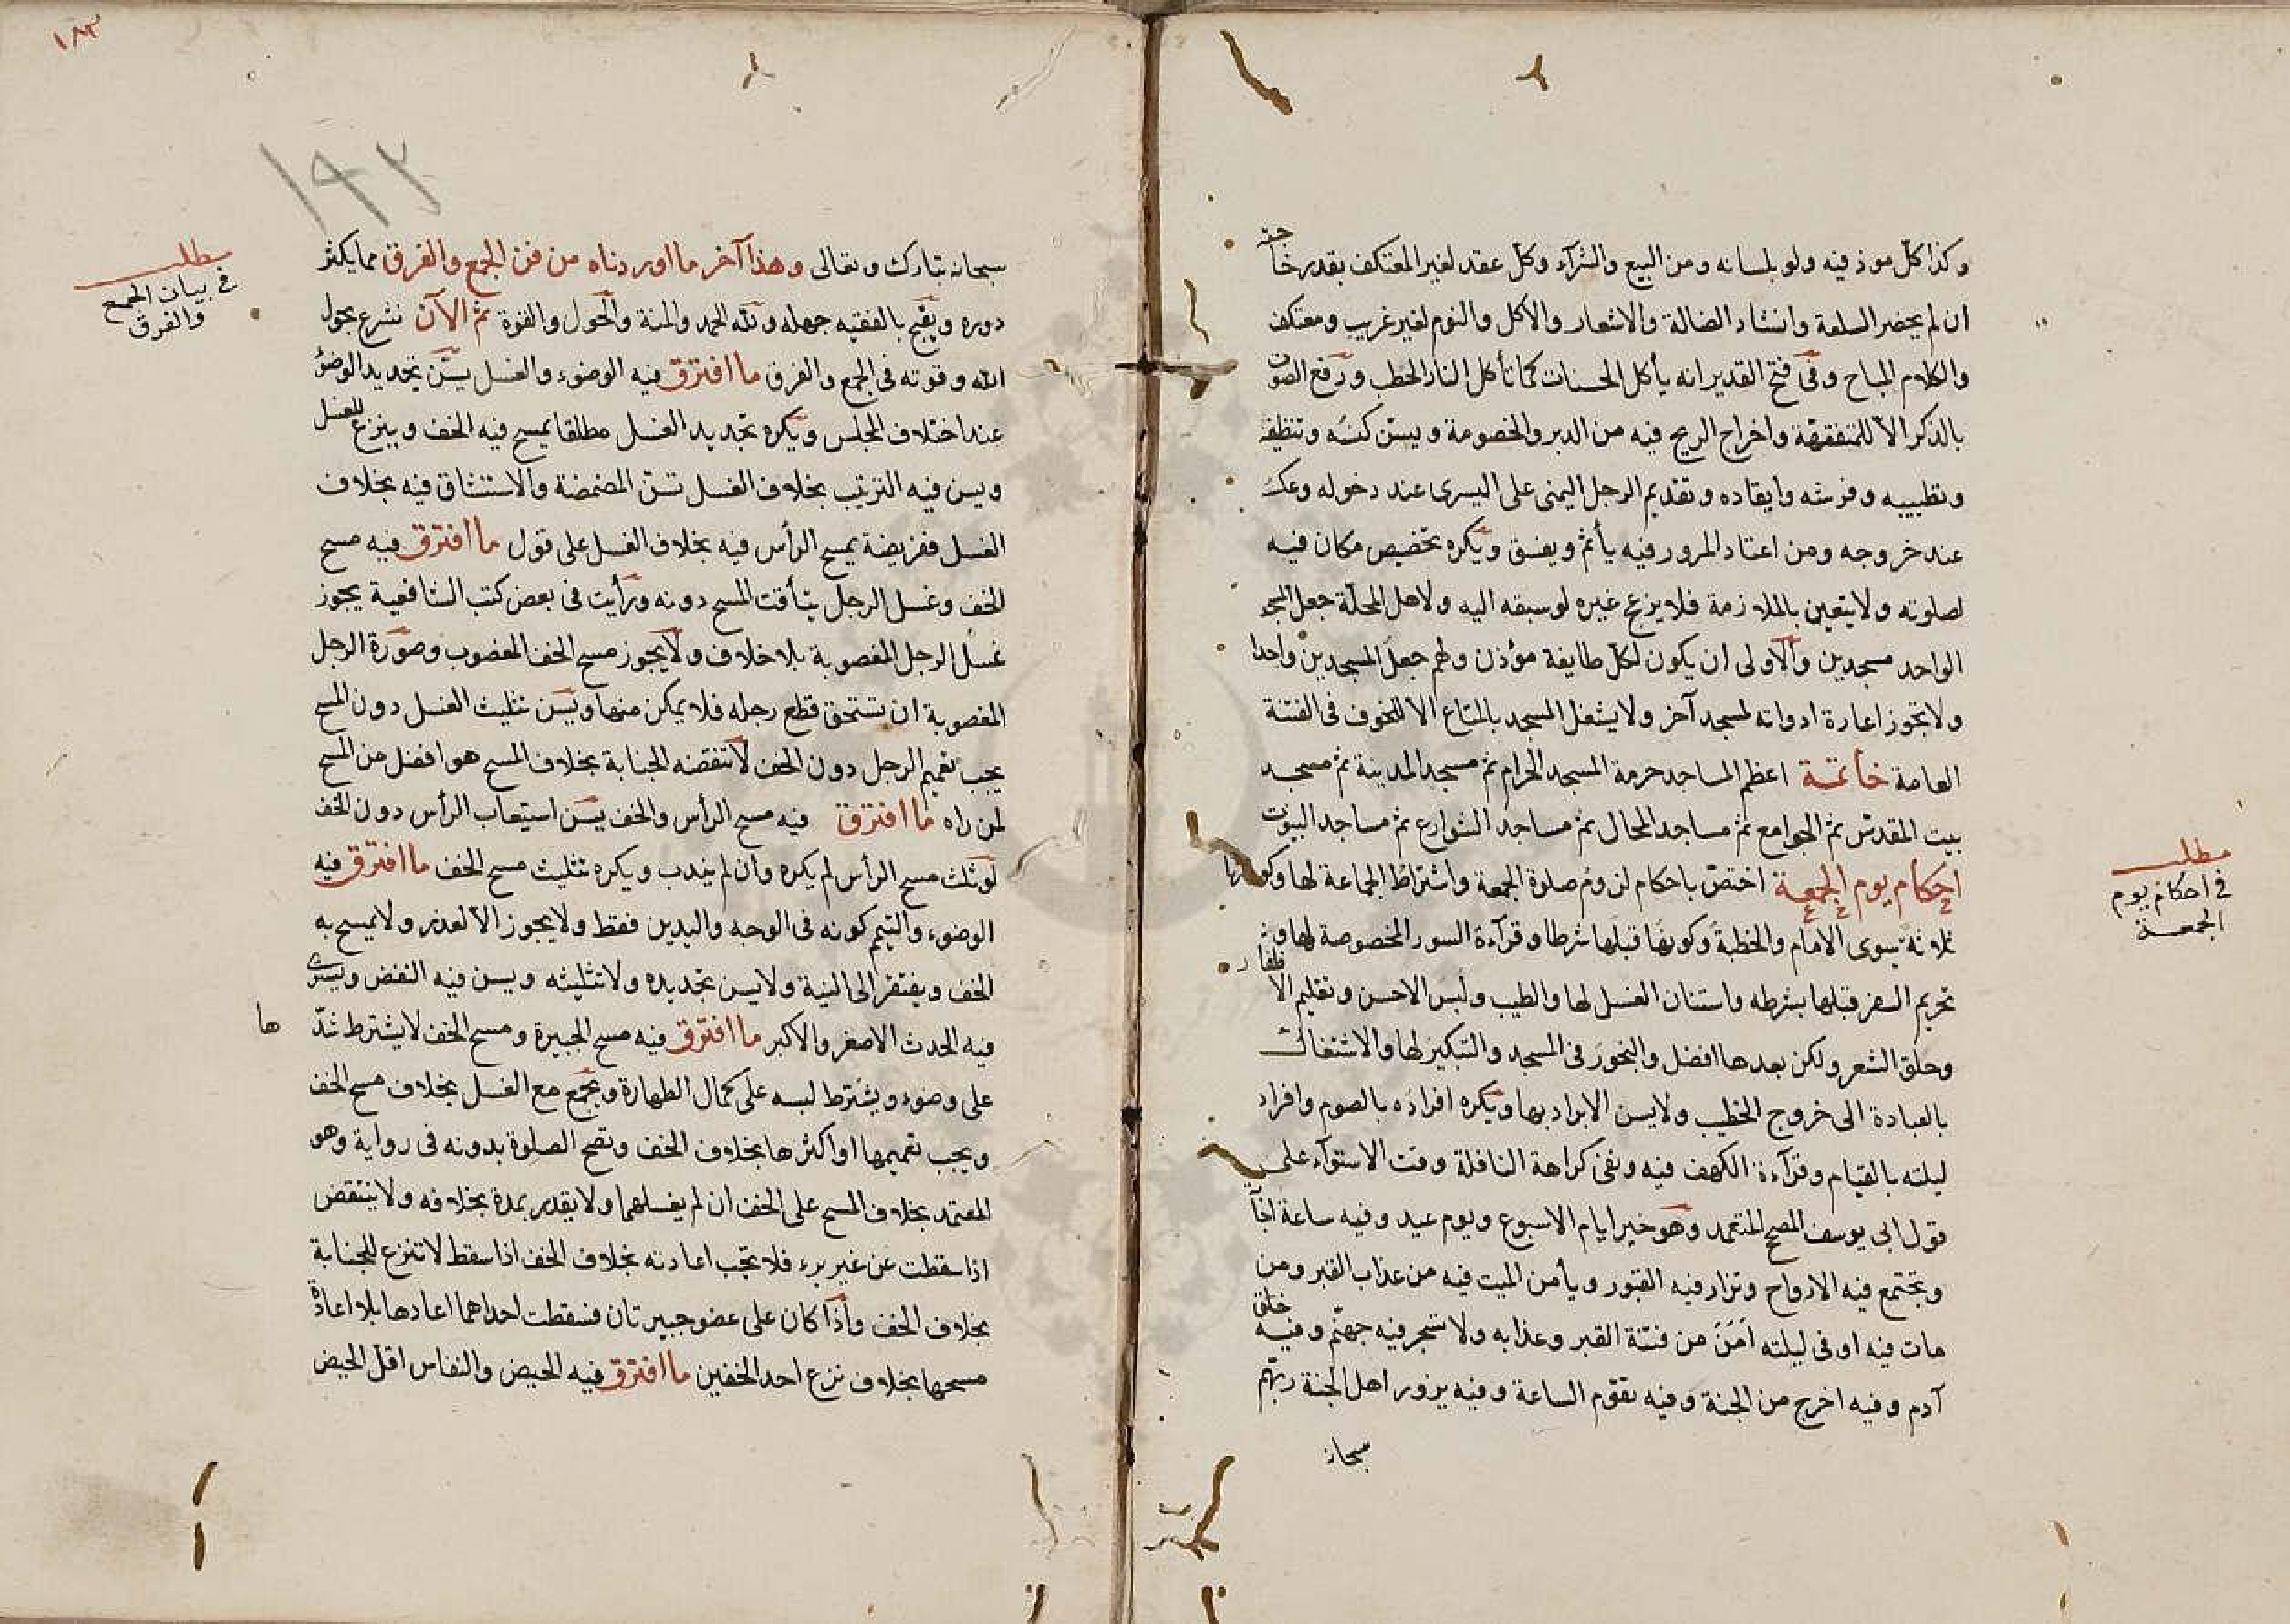 وكذا كل موذ فيه ولو بلسانه ومن البيع والشرآء وكل عقد لغير المعتكف بقدر حاجته
ان لم يحضر السلعة وانشاد الضالة والاشعار والاكل والنوم لغير غريب ومعتكف
والكلام المباح وفى فتح القدير انه يأكل الحسنات كما تأكل النار الحطب ورفع الصوت
بالذكر الا للمتفقهة واخراج الريح فيه من الدبر والخصومة ويسن كنسه وتنظيفه
وتطييبه وفرشه وايقاده وتقديم الرجل اليمنى على اليسرى عند دخوله وعكسه
عند خروجه ومن اعتاد المرور فيه يأثم ويفسق ويكره تخصيص مكان فيه
لصلوته ولا يتعين بالملازمة فلا يزعج غيره لو سبقه اليه ولاهل المحلة جعل المسجد
الواحد مسجدين والاولى ان يكون لكل طايفة مؤذن ولهم جعل المسجدين واحدا
ولا تجوز اعارة ادواته لمسجد آخر ولا يشغل المسجد بالمتاع الا للخوف فى الفتنة
العامة خاتمة اعظم المساجد حرمة المسجد الحرام ثم مسجد المدينة ثم مسجد
بيت المقدس ثم الجوامع ثم مساجد المحال ثم مساجد الشوارع ثم مساجد البيوت
احكام يوم الجمعة اختص باحكام لزوم صلوة الجمعة واشتراط الجماعة لها وكونها
ثلاثة سوى الامام والخطبة وكونها قبلها شرطا وقرآءة السور المخصوصة لها و
تحريم السفر قبلها بشرطه واستنان الغسل لها والطيب ولبس الاحسن وتقليم الاظفار
وحلق الشعر ولكن بعدها افضل والبخور فى المسجد والتبكير لها والاشتغال
بالعبادة الى خروج الخطيب ولا يسن الابراد بها ويكره افراده بالصوم وافراد
ليلته بالقيام وقرآءة الكهف فيه ونفى كراهة النافلة وقت الاستوآء على
قول ابى يوسف المصحح المعتمد وهو خير ايام الاسبوع ويوم عيد وفيه ساعة اجابة
وتجتمع فيه الارواح وتزار فيه القبور ويأمن الميت فيه من عذاب القبر ومن
مات فيه او فى ليلته امن من فتنة القبر وعذابه ولا تسجر فيه جهنم وفيه خلق
آدم وفيه اخرج من الجنة وفيه تقوم الساعة وفيه يزور اهل الجنة ربهم
سبحانه
مطلب
فى احكام يوم
الجمعة
١٨٣
١٩٢
سبحانه تبارك وتعالى وهذا آخر ما اوردناه من فن الجمع والفرق مما يكثر
دوره ويقبح بالفقيه جهله ولله الحمد والمنة والحول والقوة ثم الآن نشرع بحول
الله وقوته فى الجمع والفرق ما افترق فيه الوضوء والغسل يسن تجديد الوضؤ
عند اختلاف المجلس ويكره تجديد الغسل مطلقا يمسح فيه الخف وينزع للغسل
ويسن فيه الترتيب بخلاف الغسل تسن المضمضة والاستنشاق فيه بخلاف
الغسل ففريضة يمسح الرأس فيه بخلاف الغسل على قول ما افترق فيه مسح
الخف وغسل الرجل يتأقت المسح دونه ورأيت فى بعض كتب الشافعية يجوز
غسل الرجل المغصوبة بلا خلاف ولا يجوز مسح الخف المغصوب وصورة الرجل
المغصوبة ان تستحق قطع رجله فلا يمكن منها ويسن تثليث الغسل دون المسح
يجب تعميم الرجل دون الخف لا تنقضه الجنابة بخلاف المسح هو افضل من المسح
لمن راه ما افترق فيه مسح الرأس والخف يسن استيعاب الرأس دون الخف
لو ثلث مسح الرأس لم يكره وان لم يندب ويكره تثليث مسح الخف ما افترق فيه
الوضوء والتيمم كونه فى الوجه واليدين فقط ولا يجوز الا لعذر ولا يمسح به
الخف ويفتقر الى النية ولا يسن تجديده ولا تثليثه ويسن فيه النفض ويستوى
فيه الحدث الاصغر والاكبر ما افترق فيه مسح الجبيرة ومسح الخف لا يشترط شدها
على وضوء ويشترط لبسه على كمال الطهارة ويجمع مع الغسل بخلاف مسح الخف
ويجب تعميمها او اكثرها بخلاف الخف وتصح الصلوة بدونه فى رواية وهو
المعتمد بخلاف المسح على الخف ان لم يغسلهما ولا يقدر بمدة بخلافه ولا ينتقض
اذا سقطت عن غير برء فلا تجب اعادته بخلاف الخف اذا سقط لا تنزع للجنابة
بخلاف الخف واذا كان على عضو جبيرتان فسقطت احداهما اعادها بلا اعادة
مسحها بخلاف نزع احد الخفين ما افترق فيه الحيض والنفاس اقل الحيض
مطلب
فى بيان الجمع
والفرق